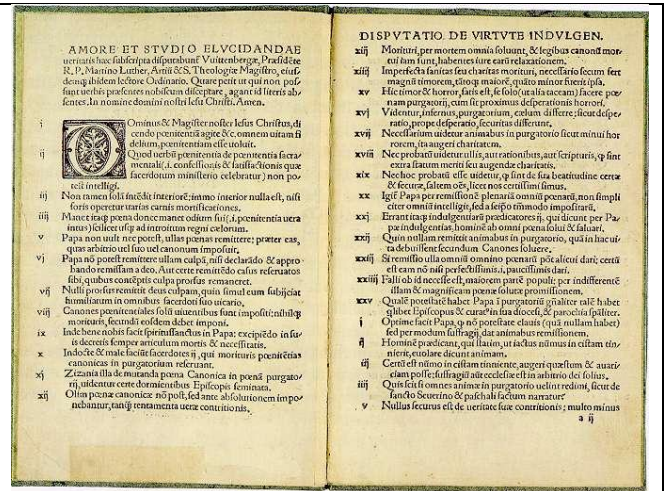 AMORE ET STVDIO ELVCIDANDAE
ueritatis hæc subscripta disputabunt Vuittenbergæ, Præsidẽte
R. P. Martino Luther, Artiũ & S. Theologiæ Magistro, eius-
demq; ibidem lectore Ordinario. Quare petit ut qui non pos-
sunt uerbis præsentes nobiscum disceptare, agant id literis ab-
sentes. In nomine domini nostri Iesu Christi. Amen.
i Ominus & Magister noster Iesus Christus, di
cendo pœnitentiã agite &c. omnem uitam fi
delium, pœnitentiam esse uoluit.
ij Quod uerbũ pœnitentia de pœnitentia sacra
mentali (.i. confessionis & satisfactionis quæ
sacerdotum ministerio celebratur) non po-
test intelligi.
iij Non tamen solã intẽdit interiorẽ; immo interior nulla est, nisi
foris operetur uarias carnis mortificationes.
iiij Manet itaq; pœna donec manet odium sui (.i. pœnitentia uera
intus) scilicet usq; ad introitum regni cælorum.
v Papa non uult nec potest, ullas pœnas remittere; præter eas,
quas arbitrio uel suo uel canonum imposuit.
vj Papa nõ potest remittere ullam culpã, nisi declarãdo & appro
bando remissam a deo. Aut certe remittẽdo casus reseruatos
sibi, quibus contẽptis culpa prorsus remaneret.
vij Nulli prorsus remittit deus culpam, quin simul eum subijciat
humiliatum in omnibus sacerdoti suo uicario.
viij Canones pœnitentiales solũ uiuentibus sunt impositi; nihilq;
morituris, secundũ eosdem debet imponi.
ix Inde bene nobis facit spiritussanctus in Papa; excipiẽdo in su-
is decretis semper articulum mortis & necessitatis.
x Indocte & male faciũt sacerdotes ij, qui morituris pœnitẽtias
canonicas in purgatorium reseruant.
xj Zizania illa de mutanda pœna Canonica in pœnã purgato-
rij, uidentur certe dormientibus Episcopis seminata.
xij Olim pœnæ canonicæ nõ post, sed ante absolutionem impo-
nebantur, tanq̃ tentamenta ueræ contritionis.
DISPVTATIO DE VIRTVTE INDVLGEN.
xiij Morituri, per mortem omnia soluunt, & legibus canonũ mor-
tui iam sunt, habentes iure earũ relaxationem.
xiiij Imperfecta sanitas seu charitas morituri, necessario secum fert
magnũ timorem, tãtoq; maiorẽ, quãto minor fuerit ipsa.
xv Hic timor & horror, satis est, se solo (ut alia taceam) facere pœ-
nam purgatorij, cum sit proximus desperationis horrori.
xvj Videntur, infernus, purgatorium, cælum differre; sicut despe-
ratio, prope desperatio, securitas differunt.
xvij Necessarium uidetur animabus in purgatorio sicut minui hor
rorem, ita augeri charitatem.
xviij Nec probatũ uidetur ullis, aut rationibus, aut scripturis, q̃ sint
extra statum meriti seu augendæ charitatis.
xix Nec hoc probatũ esse uidetur, q̃ sint de sua beatitudine certæ
& securæ, saltem oẽs, licet nos certissimi simus.
xx Igit̃ Papa per remissionẽ plenariã omniũ pœnarũ, non simpli
citer omniũ intelligit, sed a seipõ tm̃modo impositarũ.
xxj Errant itaq; indulgentiarũ prædicatores ij, qui dicunt per Pa-
pæ indulgentias, hominẽ ab omni pœna solui & saluari.
xxij Quin nullam remittit animabus in purgatorio, quã in hac ui-
ta debuissent secundum Canones soluere.
xxiij Si remissio ulla omniũ omnino pœnarũ põt alicui dari; certũ
est eam nõ nisi perfectissimis .i. paucissimis dari.
xxiiij Falli ob id necesse est, maiorem partẽ populi; per indifferentẽ
illam & magnificam pœnæ solutæ promissionem.
xxv Qualẽ potestatẽ habet Papa ĩ purgatoriũ gñaliter talẽ habet
q̃libet Episcopus & curat9 in sua diocesi, & parochia sp̃aliter.
i Optime facit Papa, q̃ nõ potestate clauis (quã nullam habet)
sed per modum suffragij, dat animabus remissionem.
ij Hominẽ prædicant, qui statim, ut iactus nũmus in cistam tin-
nierit, euolare dicunt animam.
iij Certũ est nũmo in cistam tinniente, augeri quæstum & auari-
ciam posse; suffragiũ aũt ecclesiæ est in arbitrio dei solius.
iiij Quis scit si omnes animæ in purgatorio uelint redimi, sicut de
sancto Seuerino & paschali factum narratur?
v Nullus securus est de ueritate suæ contritionis; multo minus
a ij